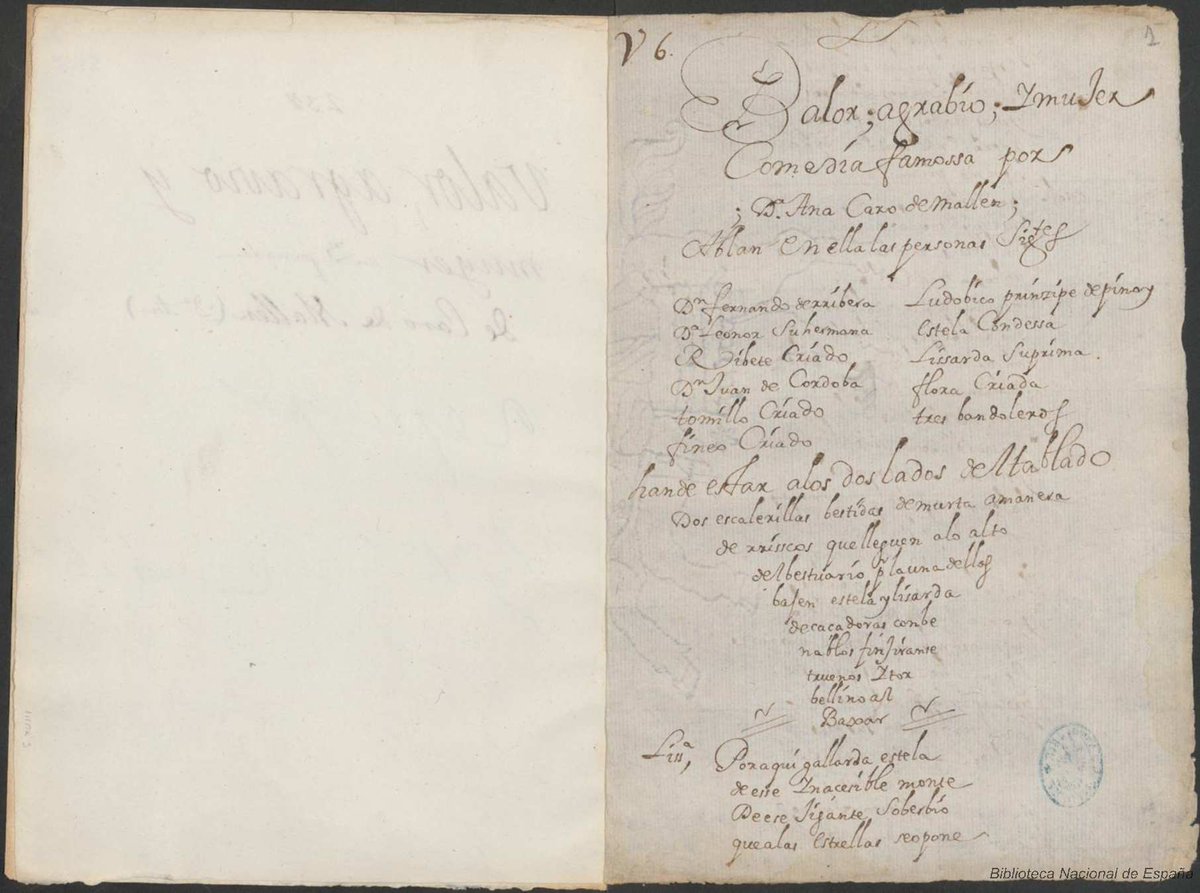 V 6.
1
Valor; agrabio; Y muJer
Comedia famossa por
; Dª. Ana Caro de Mallen;
Ablan en ella las personas Sigtes
Dn fernando de rribera
Dª Leonor Su hermana
Ribete Criado
Dn Juan de Cordoba
tomillo Criado
fineo Criado
Ludobico prinzipe de pinoy
Estela Condessa
Lissarda Su prima
flora Criada
tres bandoleros
han de estar alos dos lados del tablado
Dos escalerillas bestidas de murta amanera
de rrisscos que lleguen alo alto
del bestuario pr la una dellos
baJen estela y lisarda
de caçadoras con be
nablos finJiranse
truenos Y tor
bellino al
Baxar
Lissª,
Por aqui gallarda estela
de esse Ynacesible monte
De ese Jigante Soberbio
que alas estrellas se opone
valor, agravio y
muger
de Caro de Mallen (Dª Ana)
Biblioteca Nacional de España